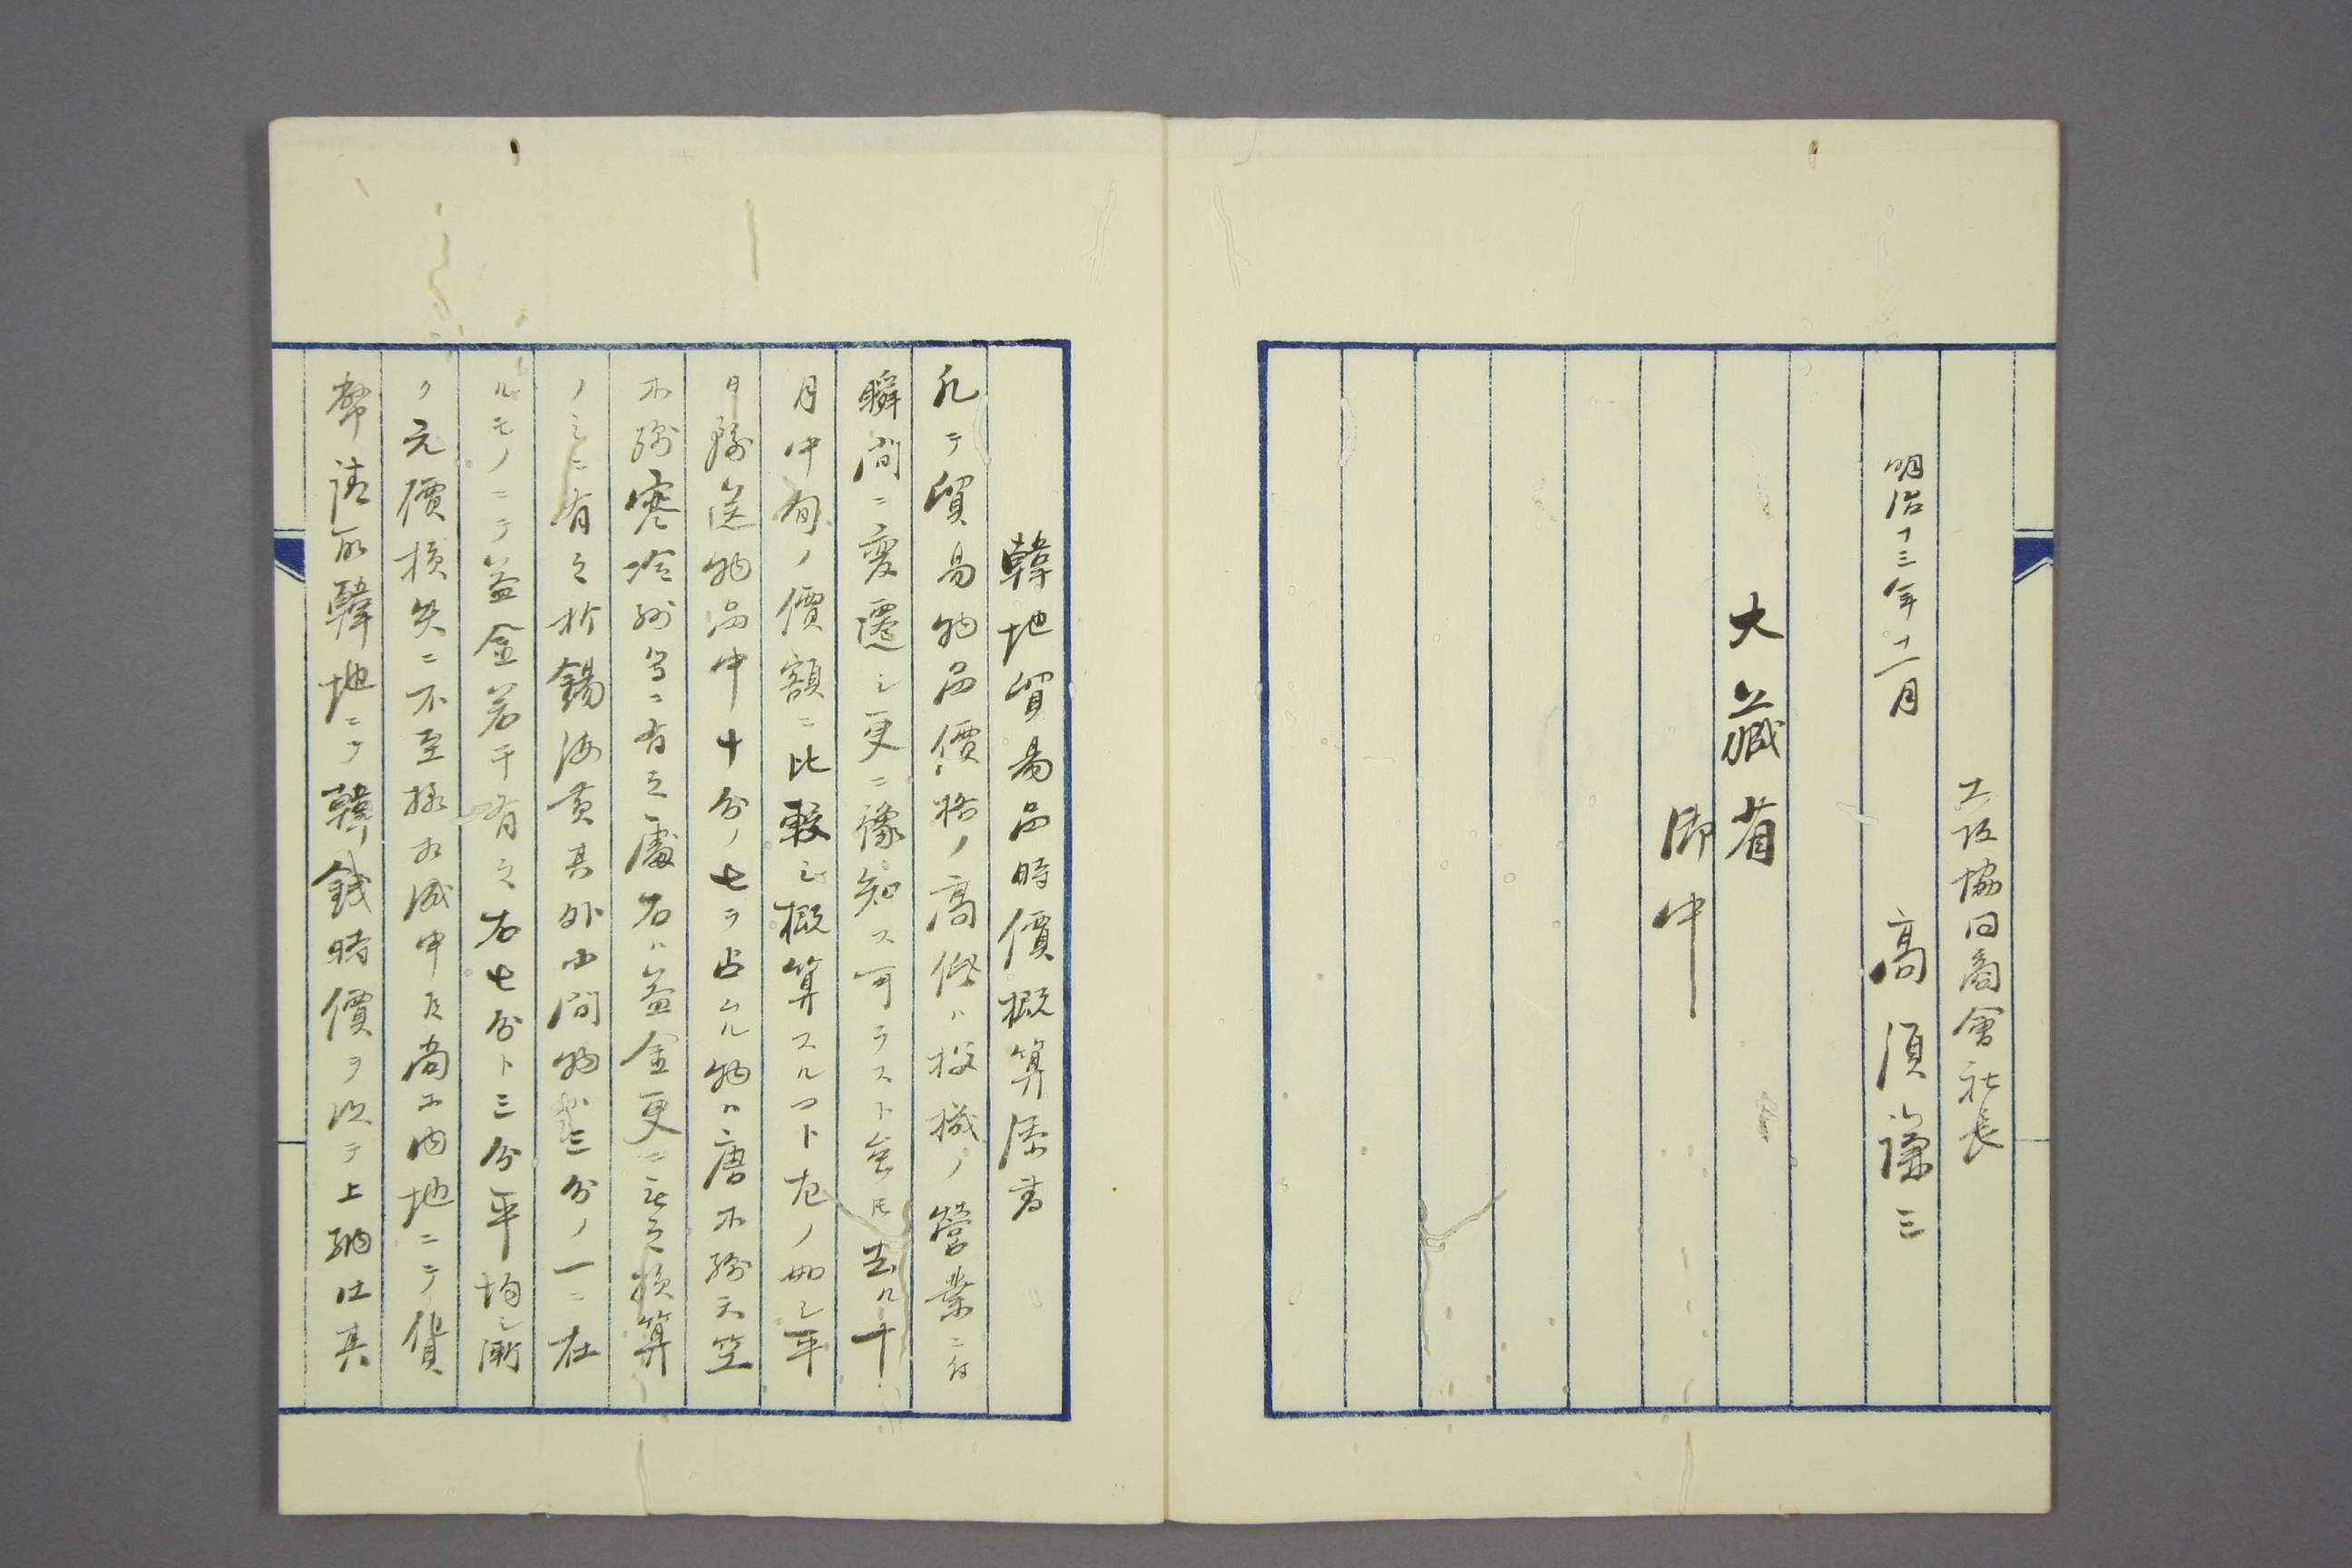 工設協同商會社長
明治十三年十二月　高須謙三
大藏省
御中
韓地貿易品時價概算添書
凡テ貿易物品價格ノ高低ハ投機ノ營業ニ付
瞬間ニ變遷シ更ニ豫知ス可ラスト雖𪜈去ル十
月中旬ノ價額ニ比較シ概算スルコト左ノ如シ平
日輸送物品中十分ノ七ヲ占ムル物ハ唐木綿天竺
木綿寒冷綿等ニ有之處右ハ益金更ニ無之損算
ノミニ有之於錫海黄其外小間物類三分ノ一ニ在
ルモノニテ益金若干有之右七分ト三分平均シ漸
ク元價損失ニ不至様相成申候尚本内地ニテ貨
幣請取韓地ニテ韓錢時價ヲ以テ上納仕其